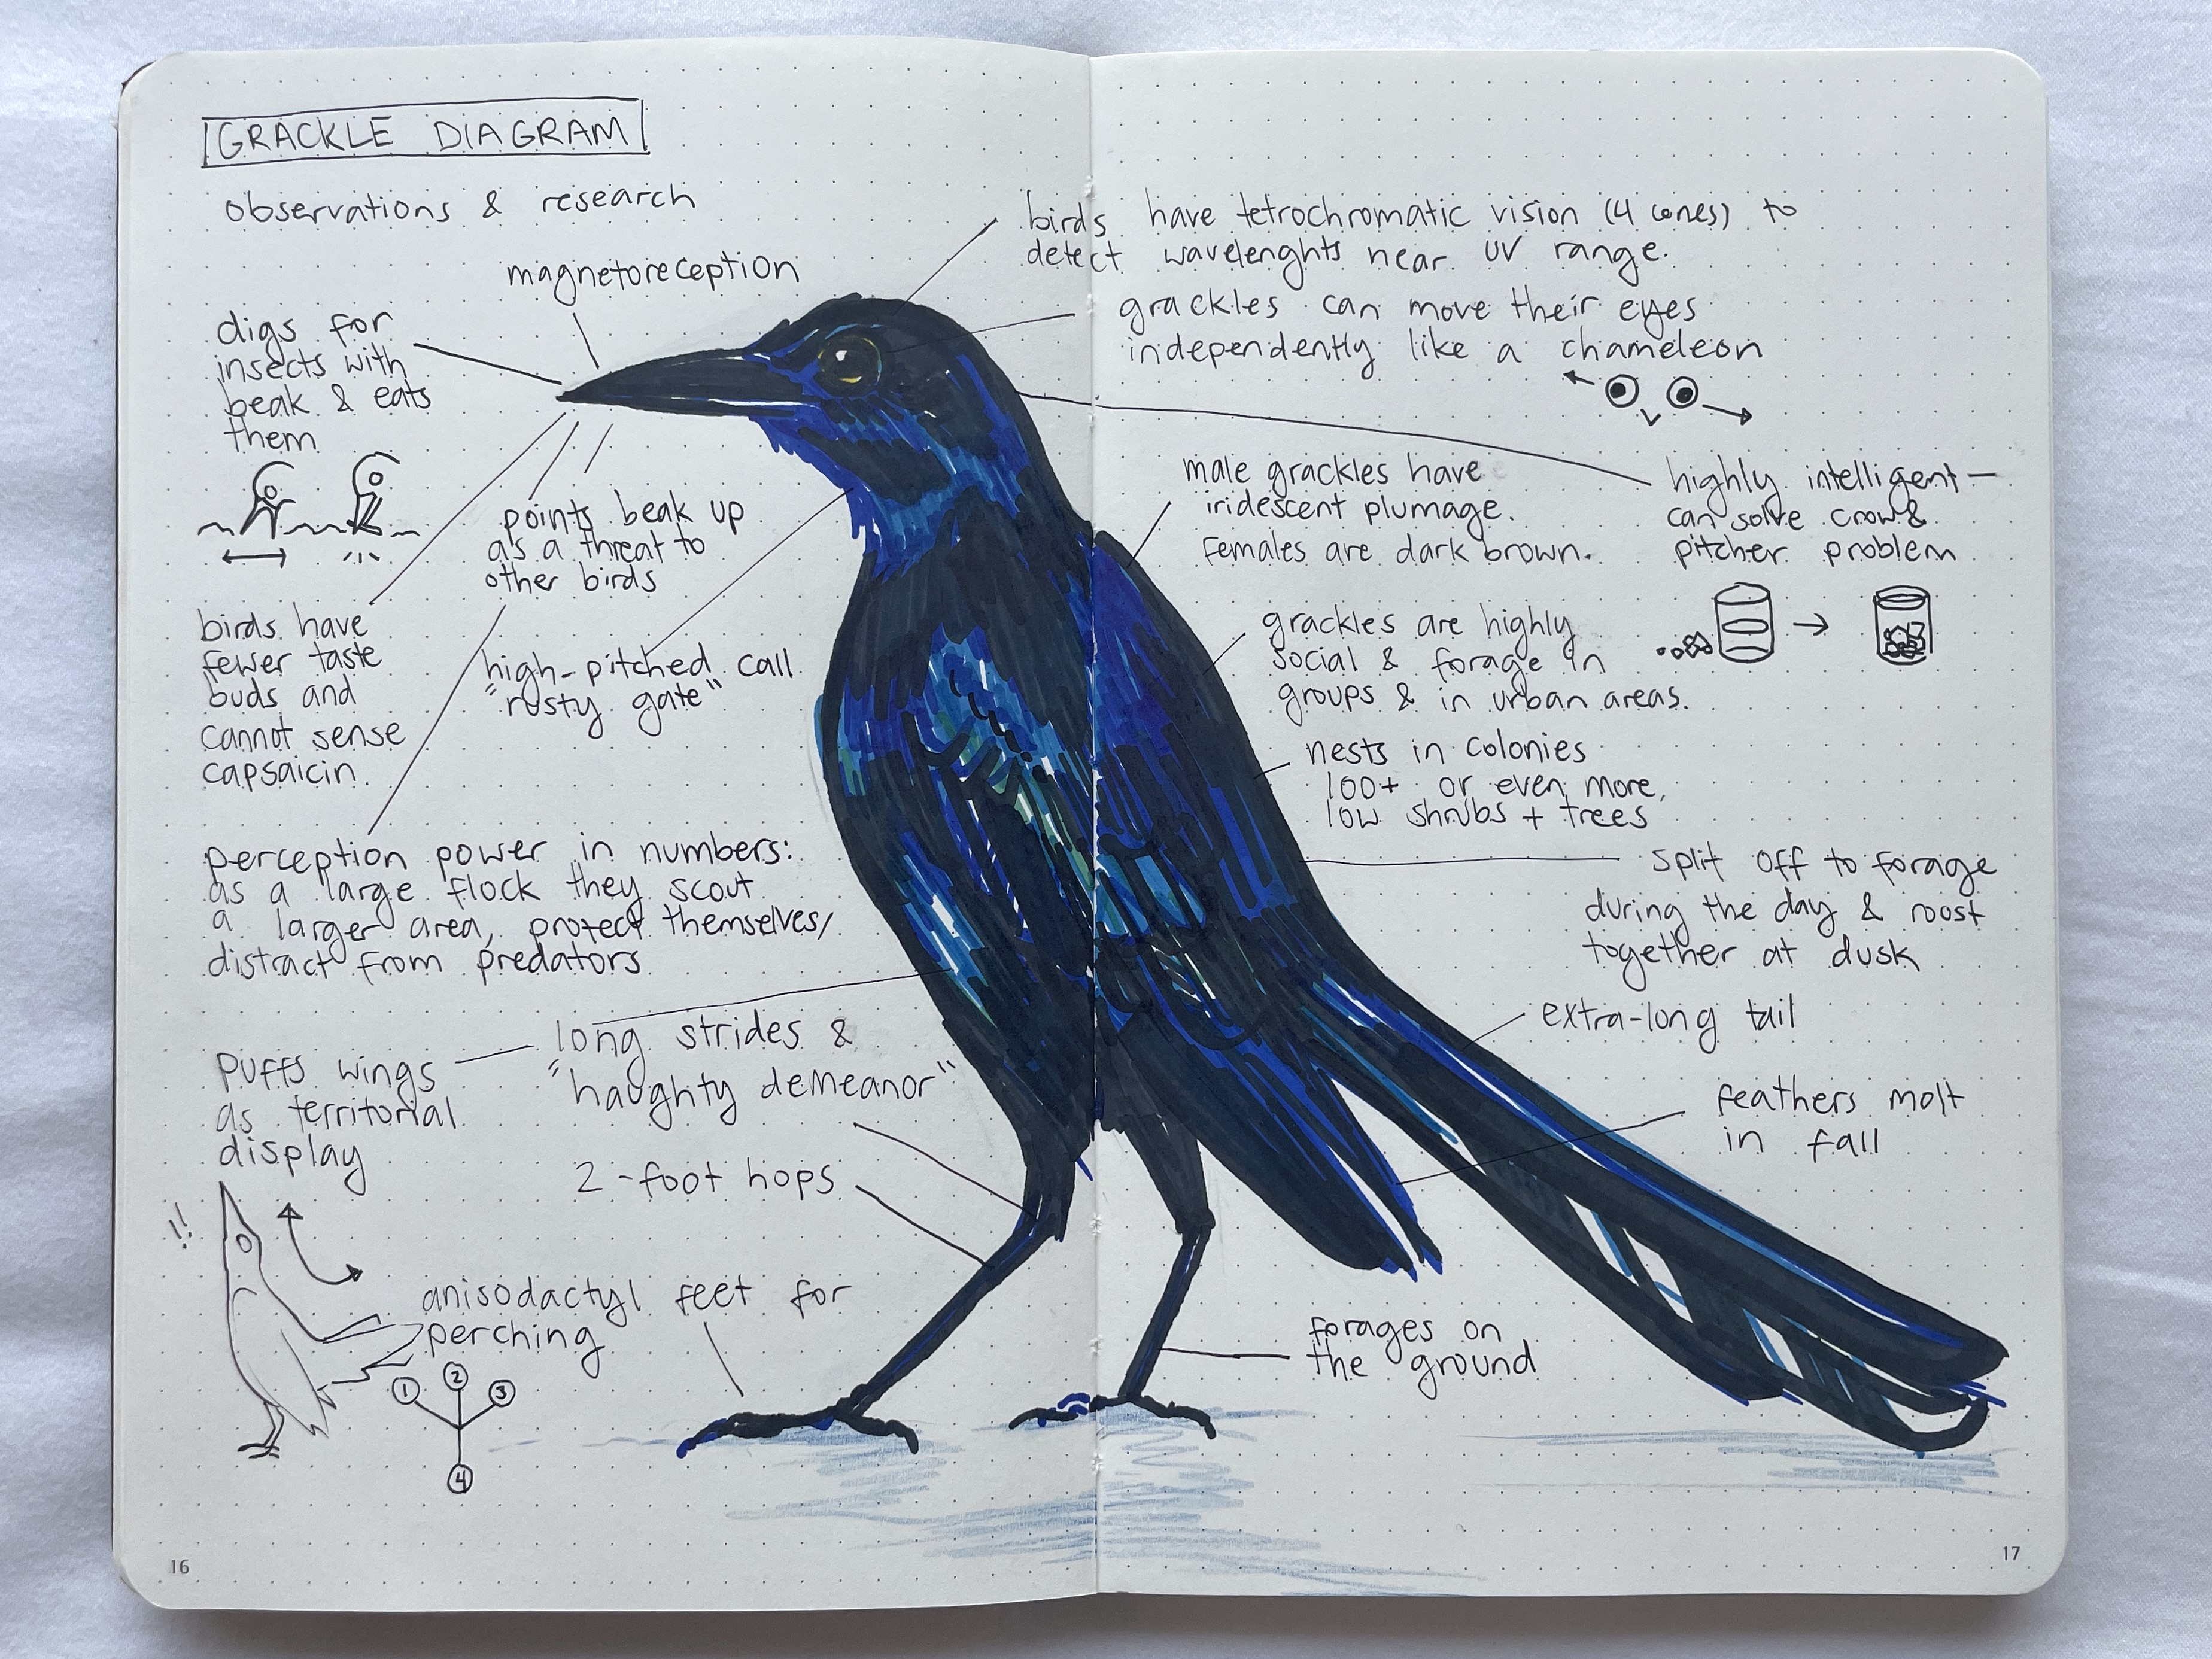 GRACKLE DIAGRAM
observations & research
magnetoreception
digs for
insects with
beak & eats
them
points beak up
as a threat to
other birds
birds have
fewer taste
buds and
cannot sense
capsaicin.
high-pitched call
"rusty gate"
perception power in numbers:
as a large flock they scout
a larger area, protect themselves/
distract from predators
long strides &
"haughty demeanor"
puffs wings
as territorial
display
!!
2-foot hops
anisodactyl feet for
perching
1
2
3
4
16
birds have tetrochromatic vision (4 cones) to
detect wavelenghts near UV range.
grackles can move their eyes
independently like a chameleon
male grackles have
iridescent plumage.
females are dark brown.
highly intelligent—
can solve crow &
pitcher problem
grackles are highly
social & forage in
groups & in urban areas.
nests in colonies
100+ or even more,
low shrubs + trees
split off to forage
during the day & roost
together at dusk
extra-long tail
feathers molt
in fall
forages on
the ground
17